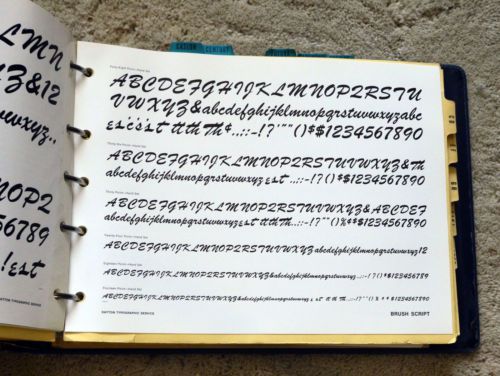 LMN
YZ&12
uvwxyz..
CASLON CENTURY
Forty-Eight Point—Hand Set
ABCDEFGHIJKLMNOPQRSTU
VWXYZ&abcdefghijklmnopqrstuvwxyzabc
.,:;-!?'""()$$1234567890
Thirty-Six Point—Hand Set
ABCDEFGHIJKLMNOPQRSTUVWXYZ&
abcdefghijklmnopqrstuvwxyz
.,:;-!?()$$1234567890
Thirty Point—Hand Set
ABCDEFGHIJKLMNOPQRSTUVWXYZ&ABCDEF
abcdefghijklmnopqrstuvwxyz
1234567890
Twenty-Four Point—Hand Set
ABCDEFGHIJKLMNOPQRSTUVWXYZabcdefghijklmnopqrstuvwxyz12
Eighteen Point—Hand Set
ABCDEFGHIJKLMNOPQRSTUVWXYZ&abcdefghijklmnopqrstuvwxyz
1234567890
Fourteen Point—Hand Set
ABCDEFGHIJKLMNOPQRSTUVWXYZ&abcdefghijklmnopqrstuvwxyz
1234567890
DAYTON TYPOGRAPHIC SERVICE
BRUSH SCRIPT